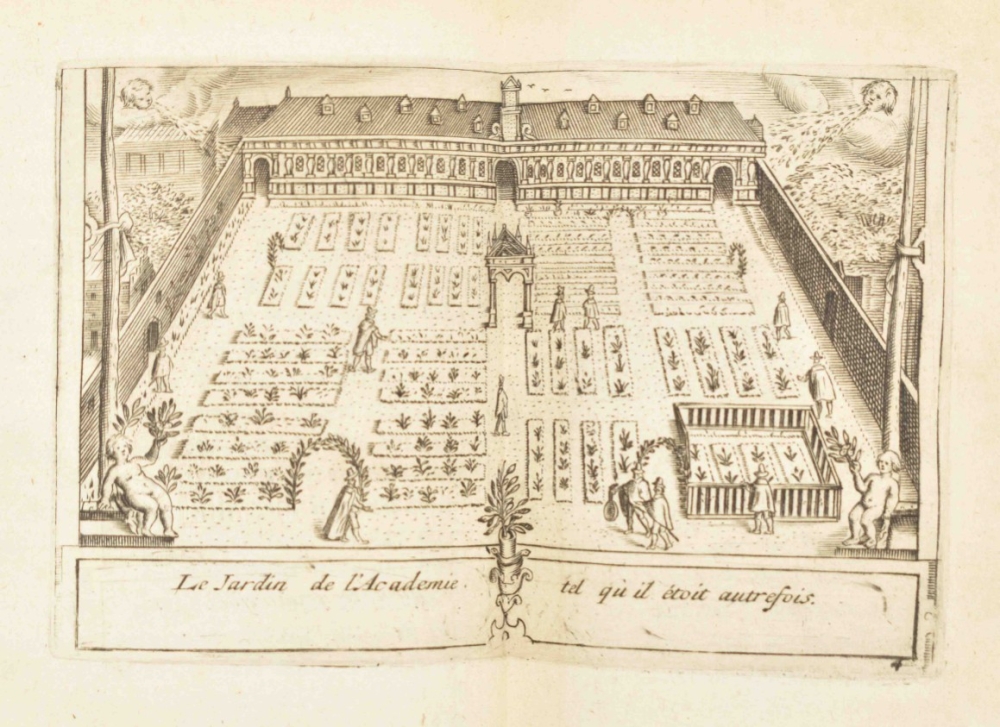 Le Jardin de l'Academie. tel qu'il étoit autrefois.
4